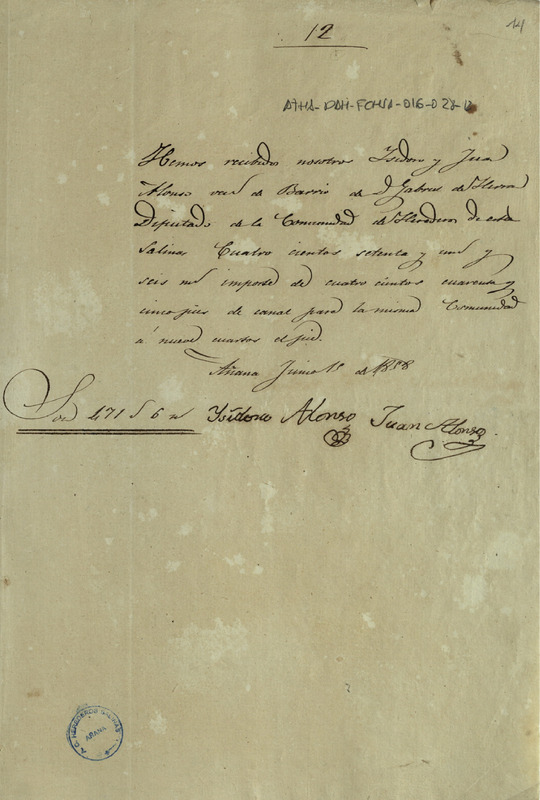 12
14
ATHA-DAH-FCHSA-016-028-12
Hemos recibido nosotros Isidoro y Juan
Alonso vec.s de Barrio de D. Gabriel de Herran
Diputado de la Comunidad de Herederos de estas
Salinas Cuatro cientos setenta y un r.s y
seis m.s importe de cuatro cientos cuarenta y
cinco pies de canal para la misma Comunidad
á nueve cuartos el pie.
Añana Junio 15 de 1858
Son 471 r.s 6 m.s Ysidoro Alonso Juan Alonso